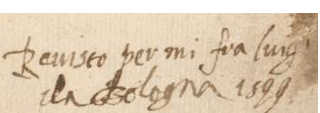 Revisto per mi fra luigi
da Bologna 1599